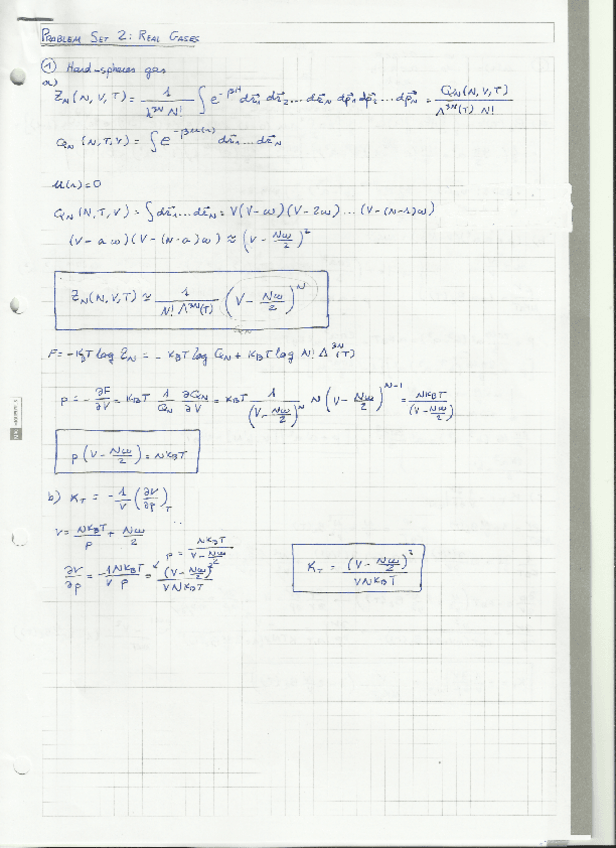 PROBLEM SET 2: REAL GASES
① Hard-spheres gas
a)
Z_N(N,V,T) = 1/(λ^{3N} N!) ∫ e^{-βH} dr⃗₁ dr⃗₂ ... dr⃗_N dp⃗₁ dp⃗₂ ... dp⃗_N = Q_N(N,V,T)/(Λ^{3N}(T) N!)
Q_N (N,T,V) = ∫ e^{-βu(r)} dr⃗₁ ... dr⃗_N
u(r) = 0
Q_N (N,T,V) = ∫ dr⃗₁ ... dr⃗_N = V(V-ω)(V-2ω) ... (V-(N-1)ω)
(V-aω)(V-(N-a)ω) ≈ (V - Nω/2)²
Z_N(N,V,T) ≈ 1/(N! Λ^{3N}(T)) (V - Nω/2)^N
F = -K_BT log Z_N = -K_BT log Q_N + K_BT log N! Λ^{3N}(T)
p = -∂F/∂V = K_BT 1/Q_N ∂Q_N/∂V = K_BT 1/(V - Nω/2)^N N (V - Nω/2)^{N-1} = NK_BT/(V - Nω/2)
p (V - Nω/2) = NK_BT
b) K_T = -1/V (∂V/∂p)_T
V = NK_BT/p + Nω/2
p = NK_BT/(V - Nω/2)
∂V/∂p = -1NK_BT/(V p) = (V - Nω/2)²/(VNK_BT)
K_T = (V - Nω/2)²/(VNK_BT)